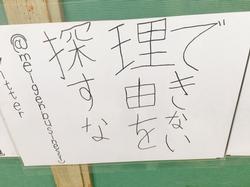 できない
理由を
探すな
@meigenbusiness
itter